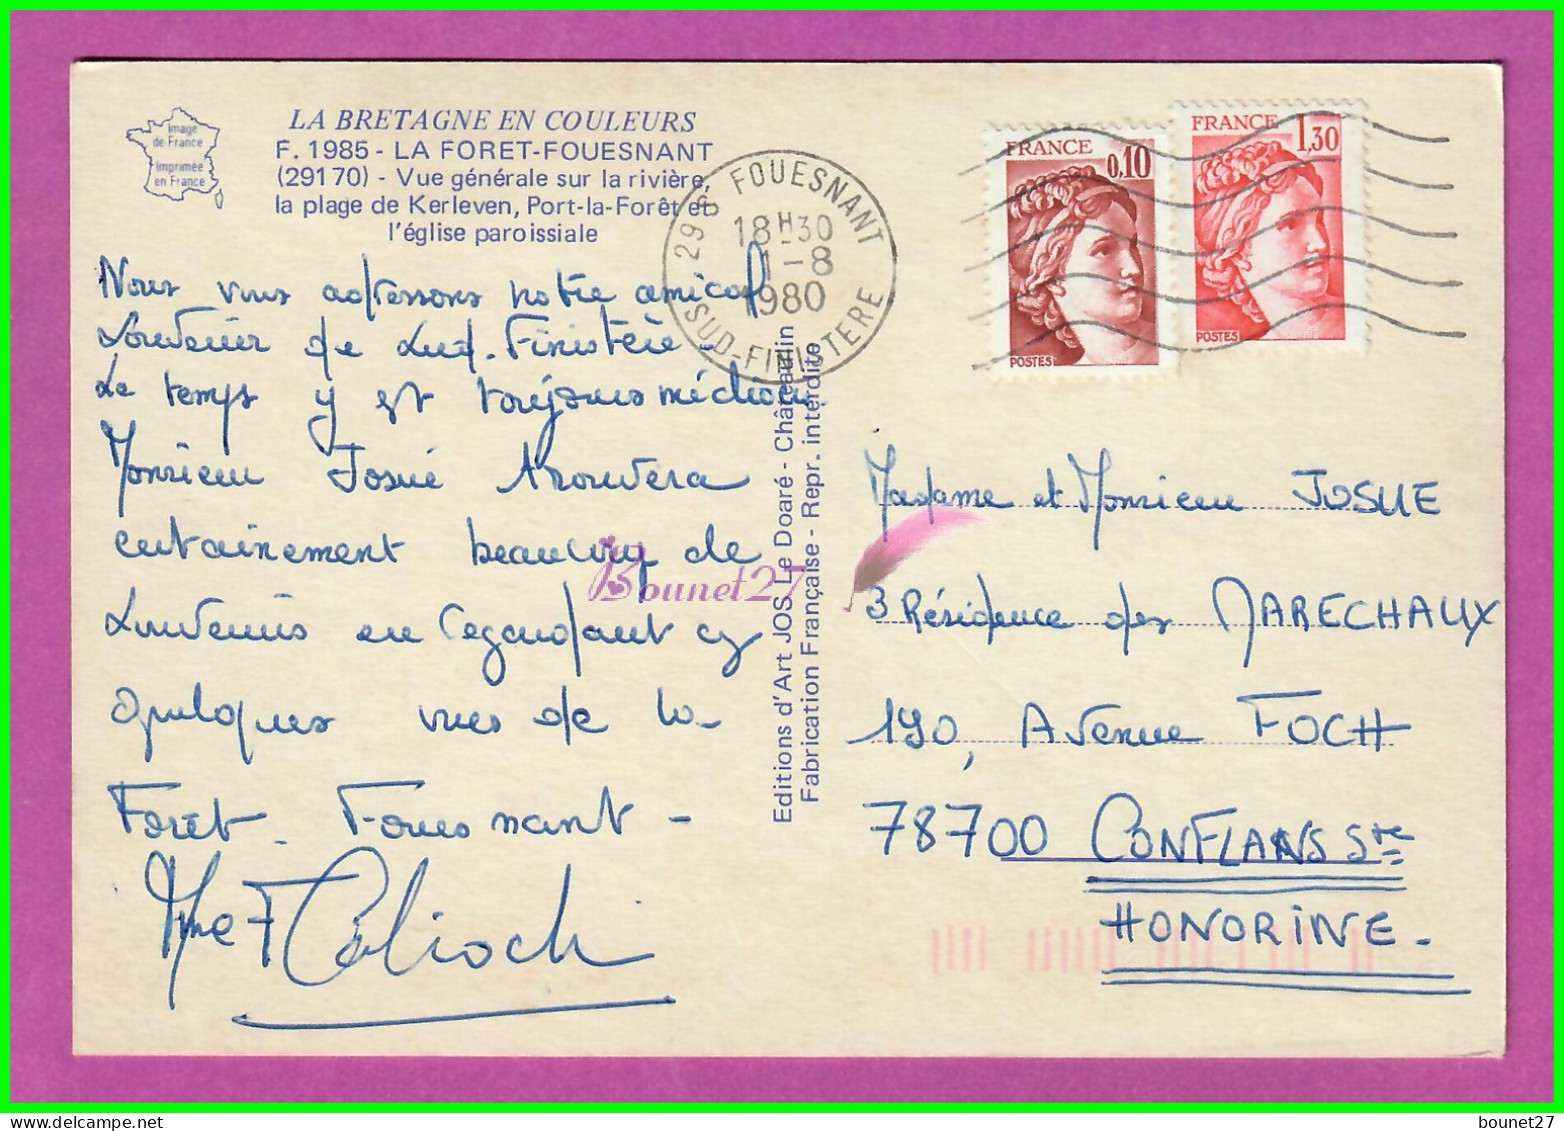 Image
de France
Imprimée
en France
LA BRETAGNE EN COULEURS
F. 1985 - LA FORET-FOUESNANT
(29170) - Vue générale sur la rivière,
la plage de Kerleven, Port-la-Forêt et
l'église paroissiale
29 S FOUESNANT
18H30
1-8
1980
SUD-FINISTERE
FRANCE
0,10
POSTES
FRANCE
1,30
POSTES
Nous vous adressons notre amical
souvenir de Sud-Finistère -
Le temps y est toujours médiocre
Monsieur Josué trouvera
certainement beaucoup de
souvenirs en regardant ces
quelques vues de la
Forêt - Fouesnant -
Mme F
Editions d'Art JOS Le Doaré - Châteaulin
Fabrication Française - Repr. interdite
Madame et Monsieur JOSUE
3 Résidence des MARECHAUX
190, Avenue FOCH
78700 CONFLANS Ste
HONORINE -
Bounet27
bounet27